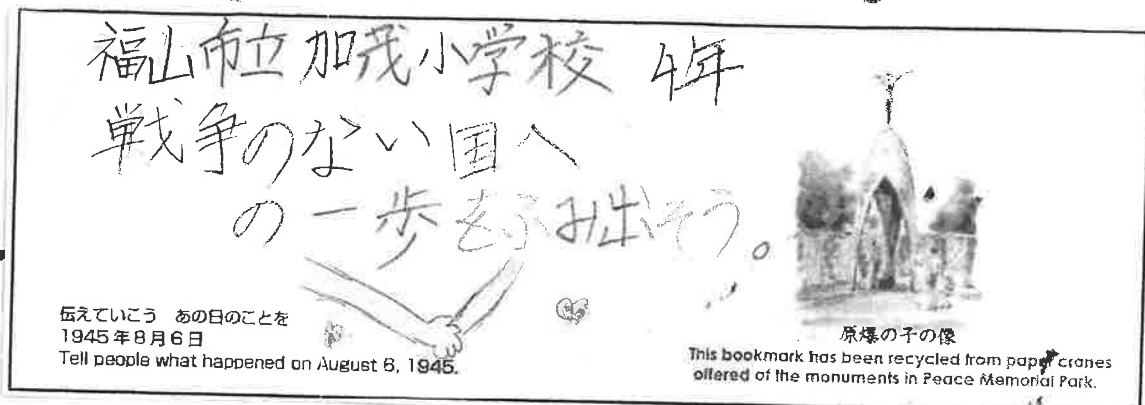 福山市立加茂小学校 4年
戦争のない国へ
の一歩をふみ出そう。
伝えていこう あの日のことを
1945年8月6日
Tell people what happened on August 6, 1945.
原爆の子の像
This bookmark has been recycled from paper cranes
offered of the monuments in Peace Memorial Park.